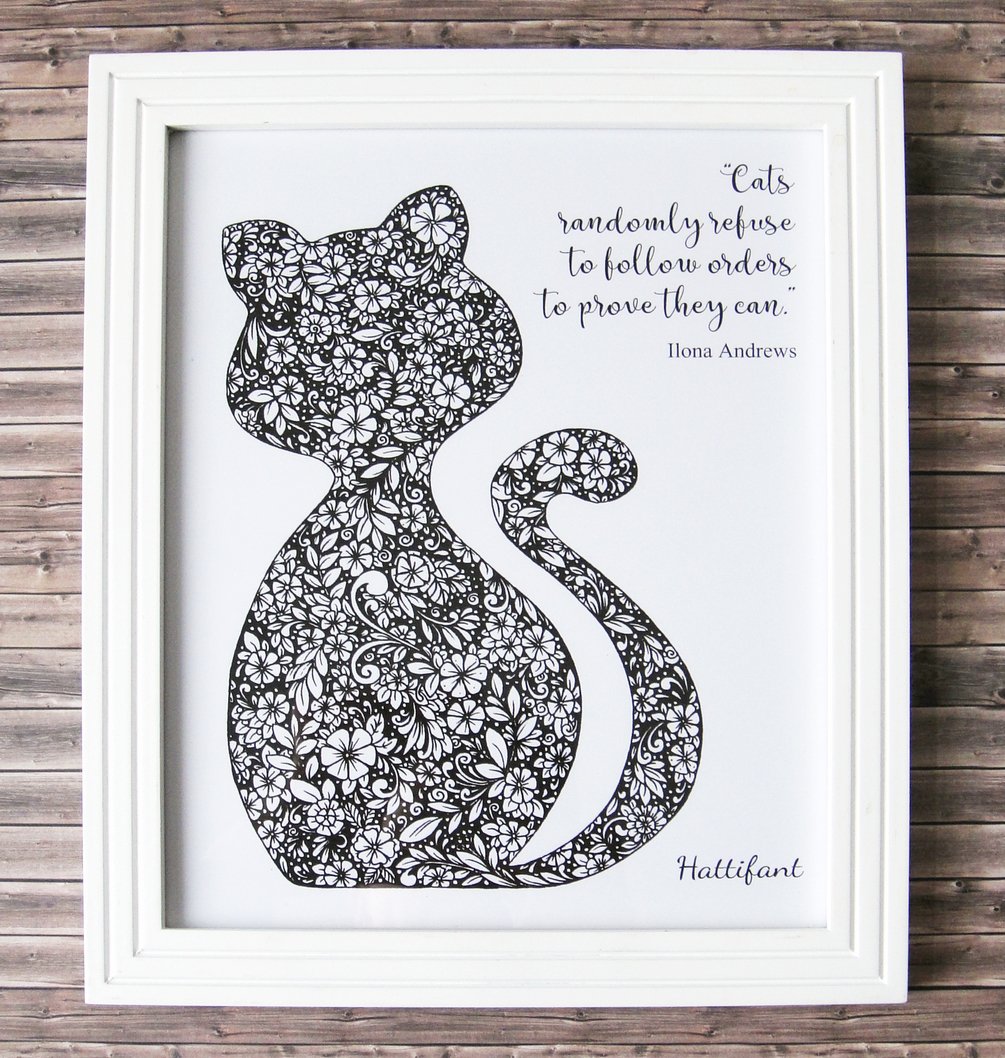 “Cats
randomly refuse
to follow orders
to prove they can.”
Ilona Andrews
Hattifant